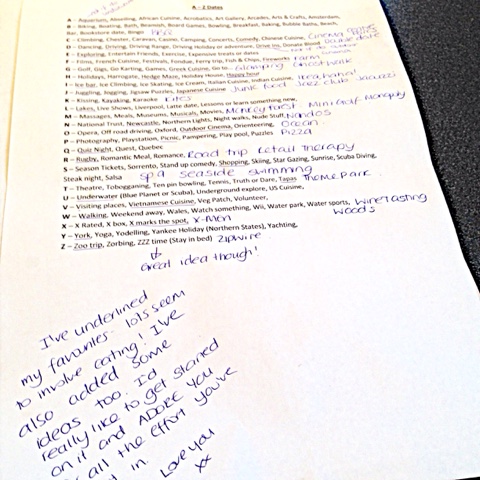 A – Z Dates
A – Aquarium, Abseiling, African Cuisine, Acrobatics, Art Gallery, Arcades, Arts & Crafts, Amsterdam,
B – Biking, Boating, Bath, Beamish, Board Games, Bowling, Breakfast, Baking, Bubble Baths, Beach,
Bar, Bookstore date, Bingo BBQ
C – Climbing, Chester, Caravan, Casino, Camping, Concerts, Comedy, Chinese Cuisine, Cinema
D – Dancing, Driving, Driving Range, Driving Holiday or adventure, Drive Ins, Donate Blood Double date
E – Exploring, Entertain Friends, Exercise, Expensive treats or dates
F – Films, French Cuisine, Festivals, Fondue, Ferry trip, Fish & Chips, Fireworks Farm
G – Golf, Gigs, Go Karting, Games, Greek Cuisine, Go to... Glamping Ghost Walk
H – Holidays, Harrogate, Hedge Maze, Holiday House, Happy hour
I – Ice bar, Ice Climbing, Ice Skating, Ice Cream, Italian Cuisine, Indian Cuisine, Ikea
J – Juggling, Jogging, Jigsaw Puzzles, Japanese Cuisine Junk food Jazz club Jacuzzi
K – Kissing, Kayaking, Karaoke Kites
L – Lakes, Live Shows, Liverpool, Latte date, Lessons or learn something new,
M – Massages, Meals, Museums, Musicals, Movies, Monkey forest Mini Golf Monopoly
N – National Trust, Newcastle, Northern Lights, Night walks, Nude Stuff, Nandos
O – Opera, Off road driving, Oxford, Outdoor Cinema, Orienteering, Ocean
P – Photography, Playstation, Picnic, Pampering, Play pool, Puzzles Pizza
Q – Quiz Night, Quest, Quebec
R – Rugby, Romantic Meal, Romance, Road trip Retail Therapy
S – Season Tickets, Sorrento, Stand up comedy, Shopping, Skiing, Star Gazing, Sunrise, Scuba Diving,
Steak night, Salsa Spa seaside swimming
T – Theatre, Tobogganing, Ten pin bowling, Tennis, Truth or Dare, Tapas Theme Park
U – Underwater (Blue Planet or Scuba), Underground explore, US Cuisine,
V – Visiting places, Vietnamese Cuisine, Veg Patch, Volunteer,
W – Walking, Weekend away, Wales, Watch something, Wii, Water park, Water sports, Wine Tasting
Woods
X – X Rated, X box, X marks the spot, X-Men
Y – York, Yoga, Yodelling, Yankee Holiday (Northern States), Yachting,
Z – Zoo trip, Zorbing, ZZZ time (Stay in bed) Zipwire
Great idea though!
I've underlined
my favourites - lots seem
to involve eating! I've
also added some
ideas too. I'd
really like to get started
on it and ADORE you
all the effort you've
in.
Love you
xx